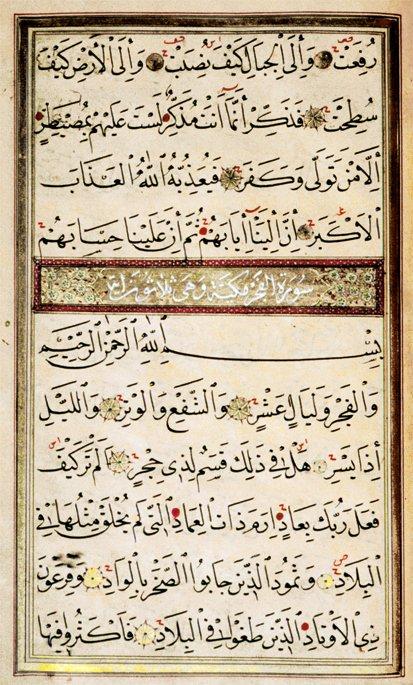 رُفِعَتْ وَاِلَى الْجِبَالِ كَيْفَ نُصِبَتْ وَاِلَى الْاَرْضِ كَيْفَ
سُطِحَتْ فَذَكِّرْ اِنَّمَا اَنْتَ مُذَكِّرٌ لَسْتَ عَلَيْهِمْ بِمُصَيْطِرٍ
اِلَّا مَنْ تَوَلَّى وَكَفَرَ فَيُعَذِّبُهُ اللّٰهُ الْعَذَابَ
الْاَكْبَرَ اِنَّ اِلَيْنَا اِيَابَهُمْ ثُمَّ اِنَّ عَلَيْنَا حِسَابَهُمْ
سورة الفجر مكية وهي ثلاثون اية
بِسْمِ اللّٰهِ الرَّحْمٰنِ الرَّحِيمِ
وَالْفَجْرِ وَلَيَالٍ عَشْرٍ وَالشَّفْعِ وَالْوَتْرِ وَاللَّيْلِ
اِذَا يَسْرِ هَلْ فِي ذٰلِكَ قَسَمٌ لِذِي حِجْرٍ اَلَمْ تَرَ كَيْفَ
فَعَلَ رَبُّكَ بِعَادٍ اِرَمَ ذَاتِ الْعِمَادِ الَّتِي لَمْ يُخْلَقْ مِثْلُهَا فِي
الْبِلَادِ وَثَمُودَ الَّذِينَ جَابُوا الصَّخْرَ بِالْوَادِ وَفِرْعَوْنَ
ذِي الْاَوْتَادِ الَّذِينَ طَغَوْا فِي الْبِلَادِ فَاَكْثَرُوا فِيهَا